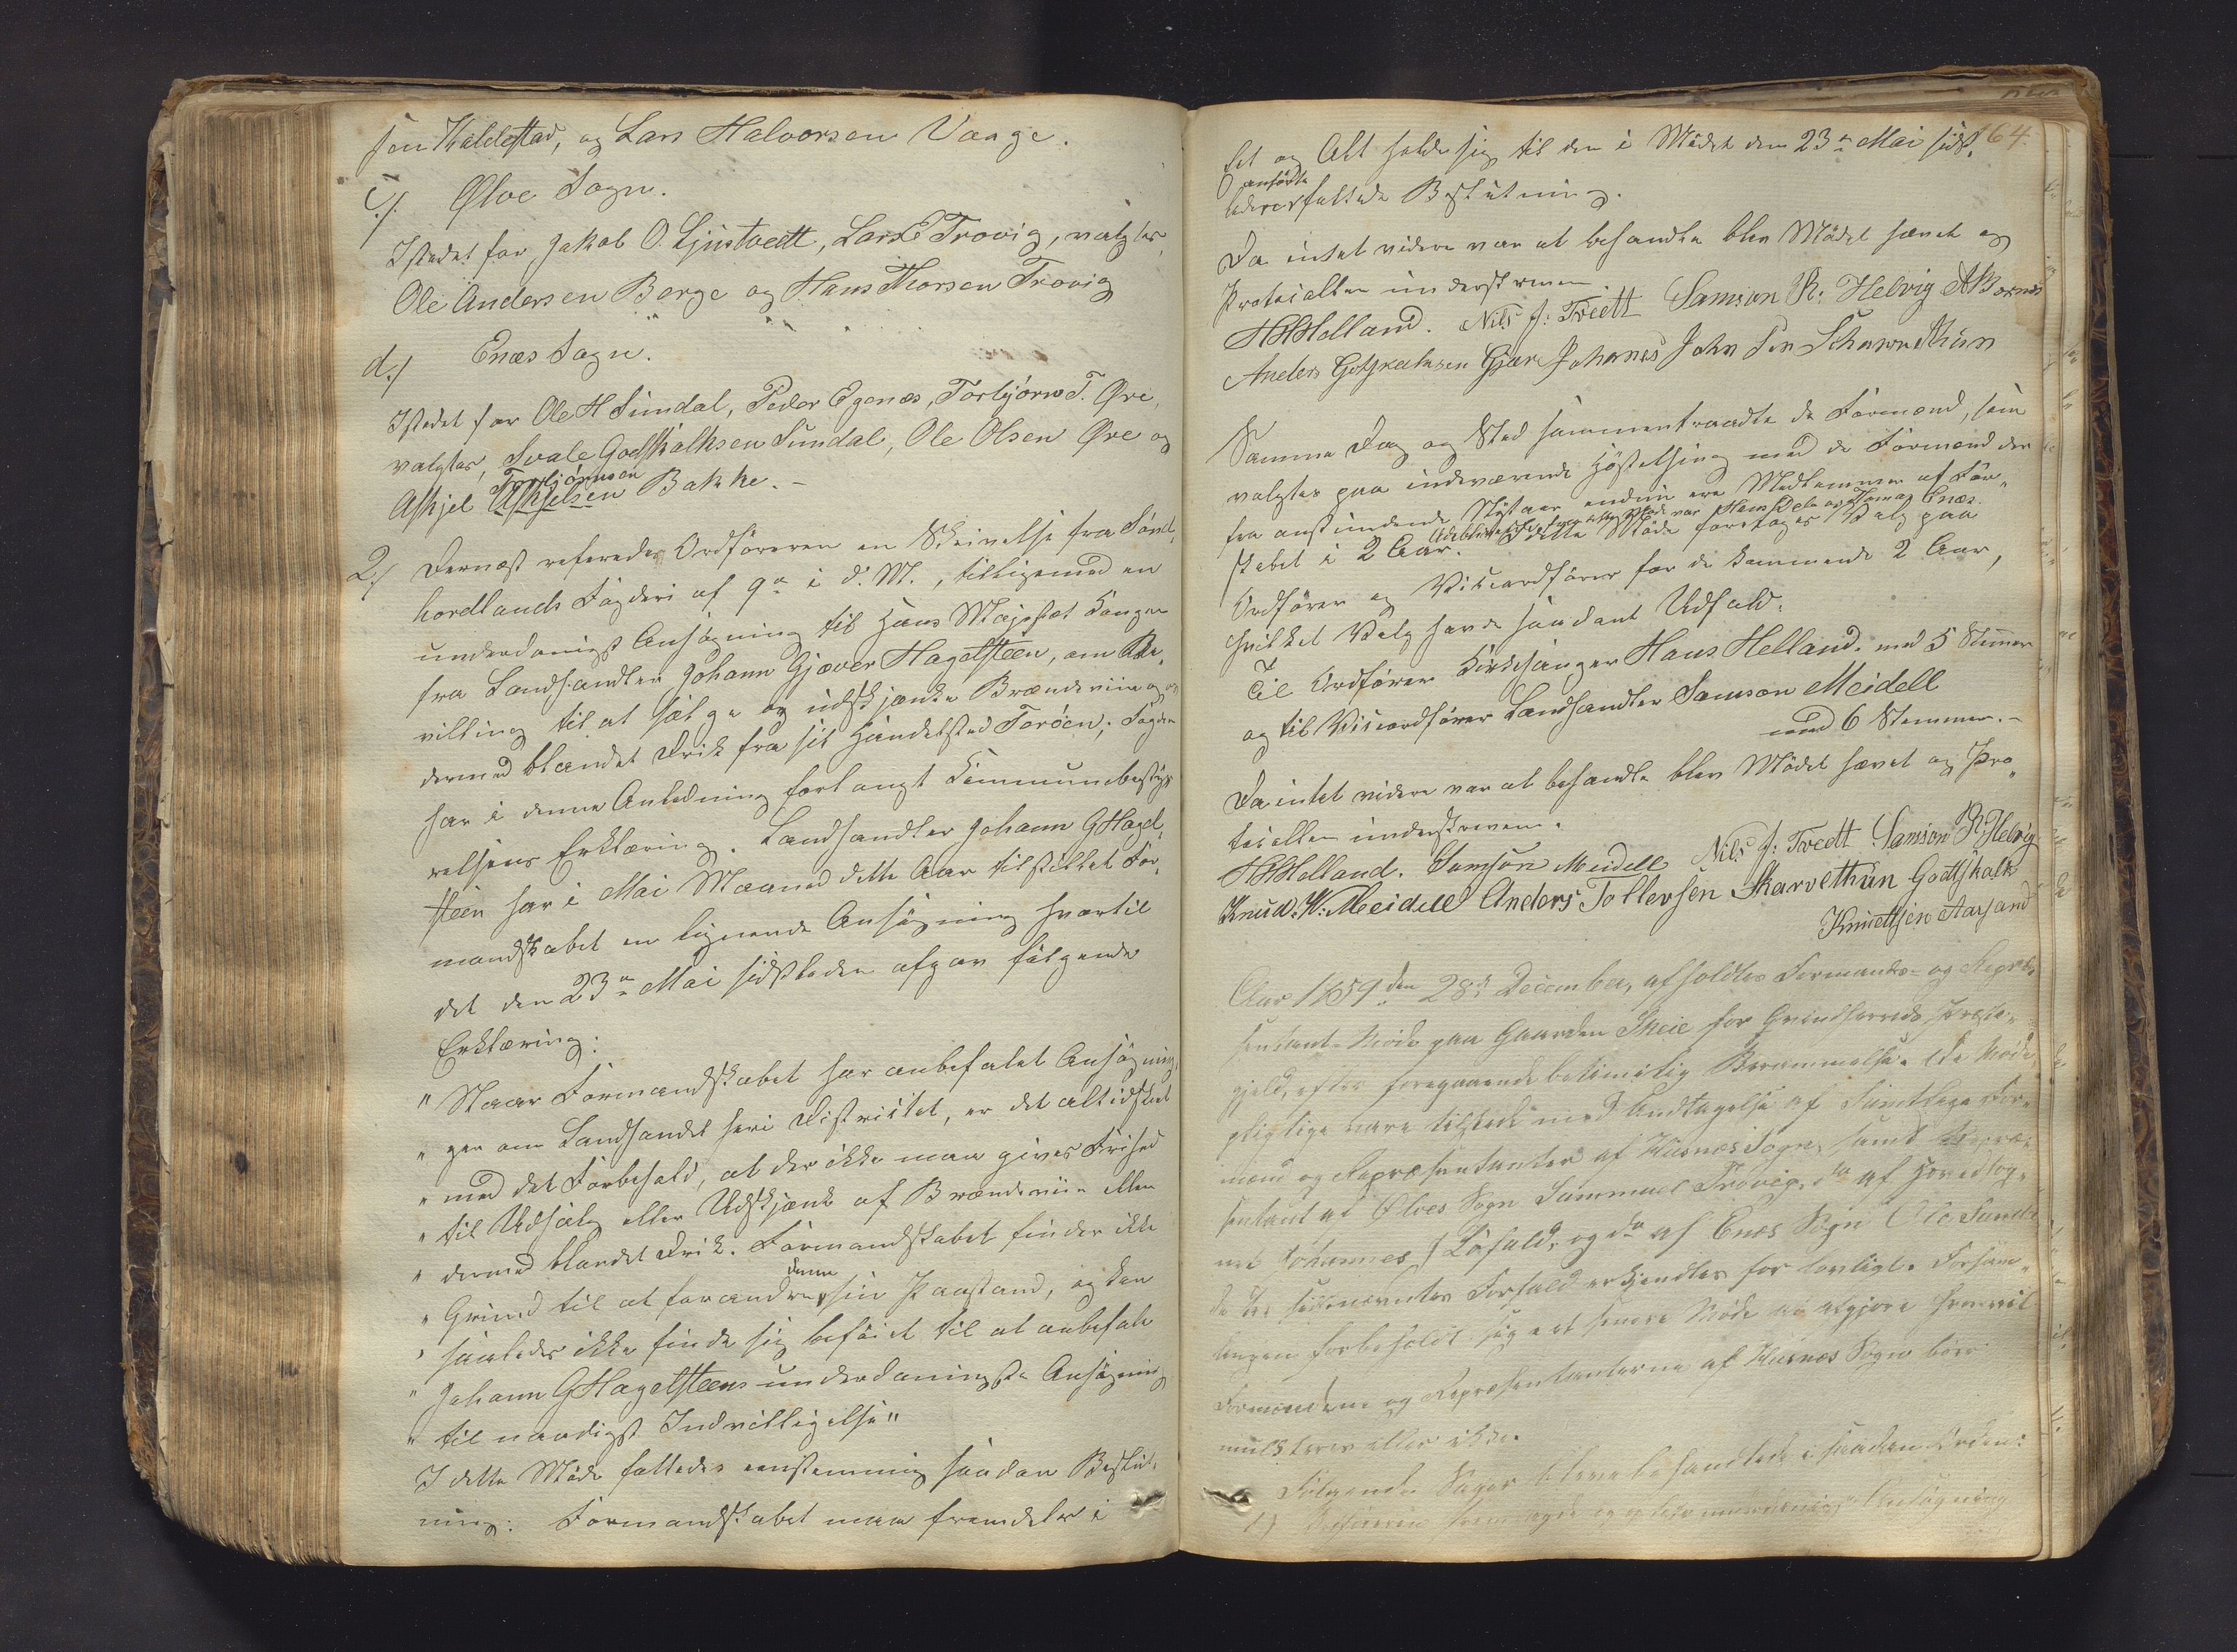 sen Kaldestad, og Lars Halvorsen Vaage.
c./ Ølve Sogn.
Istedet for Jakob O. Ljustvedt, Lars E Trovig, valgtes
Ole Andersen Berge og Hans Thorsen Trovig
d./ Enæs Sogn.
Istedet for Ole H Sundal, Peder Egenæs, Torbjørn T. Øre,
valgtes, Svale Godskalksen Sundal, Ole Olsen Øre og
Torbjörnsen
Askjel Askjelsen Bakke. -
2./ Dernæst refererede Ordföreren en Skrivelse fra Sönd-
hordlands Fogderi af 9de i d. M., tilligemed en
underdanigst Ansögning til Hans Majestæt Kongen
fra Landhandler Johann Gjæver Hagelsteen, om Be-
villing til at sælge og udskjænke Brændeviin og
dermed blandet Drik fra sit Handelsted Toröen; Fogden
har i denne Anledning forlangt Kommunebesty-
relsens Erklæring. Landhandler Johann G Hagel-
steen har i Mai Maaned dette Aar tilstillet For-
mandskabet en lignende Ansögning hvortil
det den 23de Mai sidstleden afgav fölgende
Erklæring:
" Naar Formandskabet har anbefalet Ansögnin-
" ger om Landhandel heri Distriktet, er det altid skeet
" med det Forbehold, at der ikke maa gives Frihed
" til Udsalg eller Udskjænk af Brændeviin eller
" dermed blandet Drik. Formandskabet finder ikke
denne
" Grund til at forandre sin Paastand, og kan
" saaledes ikke finde sig beföiet til at anbefale
" Johann G Hagelsteens underdanigste Ansögning
" til naadigst Indvilligelse"
I dette Möde fattedes eenstemmig saadan Beslut-
ning: Formandskabet maa fremdeles i
164.
Et og Alt holde sig til den i Mödet den 23de Mai sidst-
anförte
leden fattede Beslutning.
Da intet videre var at behandle blev Mödet hævet og
Protocollen underskreven.
H H Helland. Nils J: Tvedt Samson R: Helvig
Anders Gotskalksen Gjære Johanes John Sen Scharvethun
Samme Dag og Sted sammentraadte de Formænd, som
valgtes paa indeværende Hösttthing med de Formænd der
fra anstundende Nytaar endnu ere Medlemmer af For-
Udeblevne fra dette Möde var Hans Dale og Thomas Enæs.
skabet i 2 Aar. I dette Möde foretoges Valg paa
Ordförer og Viceordförer for de kommende 2 Aar,
hvilket Valg havde saadant Udfald.
Til Ordförer Kirkesanger Hans Helland. med 5 Stemmer
og til Viceordförer Landhandler Samson Meidell
med 6 Stemmer. -
Da intet videre var at behandle blev Mödet hævet og Pro-
tocollen underskreven.
H H Helland. Samson Meidell Nils J: Tvedt Samson R: Helvig
Knud. H: Meidell Anders Tollevsen Skarvethun Godtskalk
Knudtsen Aarsand
Aar 1859 den 28de December, afholdtes Formands- og Repræ-
sentant-Möde paa Gaarden Skeie for Qvindherreds Præste-
gjeld, efter foregaaende betimelig Berammelse. De Möde-
pligtige vare tilstede med Undtagelse af Samtlige For-
mænd og Repræsentanter af Husnæs Sogn, samt Repræ-
sentant af Ølves Sogn Sammuel Trovig, do af Hovedsog-
net Johannes J Löfald, og do af Enæs Sogn Ole Sundal
de tre sidstnævntes Forfald erkjendtes for lovligt. Forsam-
lingen forbeholdt sig i et senere Möde at afgjöre hvorvidt
Formændene og Repræsentanterne af Husnæs Sogn bör
mulkteres eller ikke.
Fölgende Sager bleve behandlede i saadan Orden:
1) Ordföreren